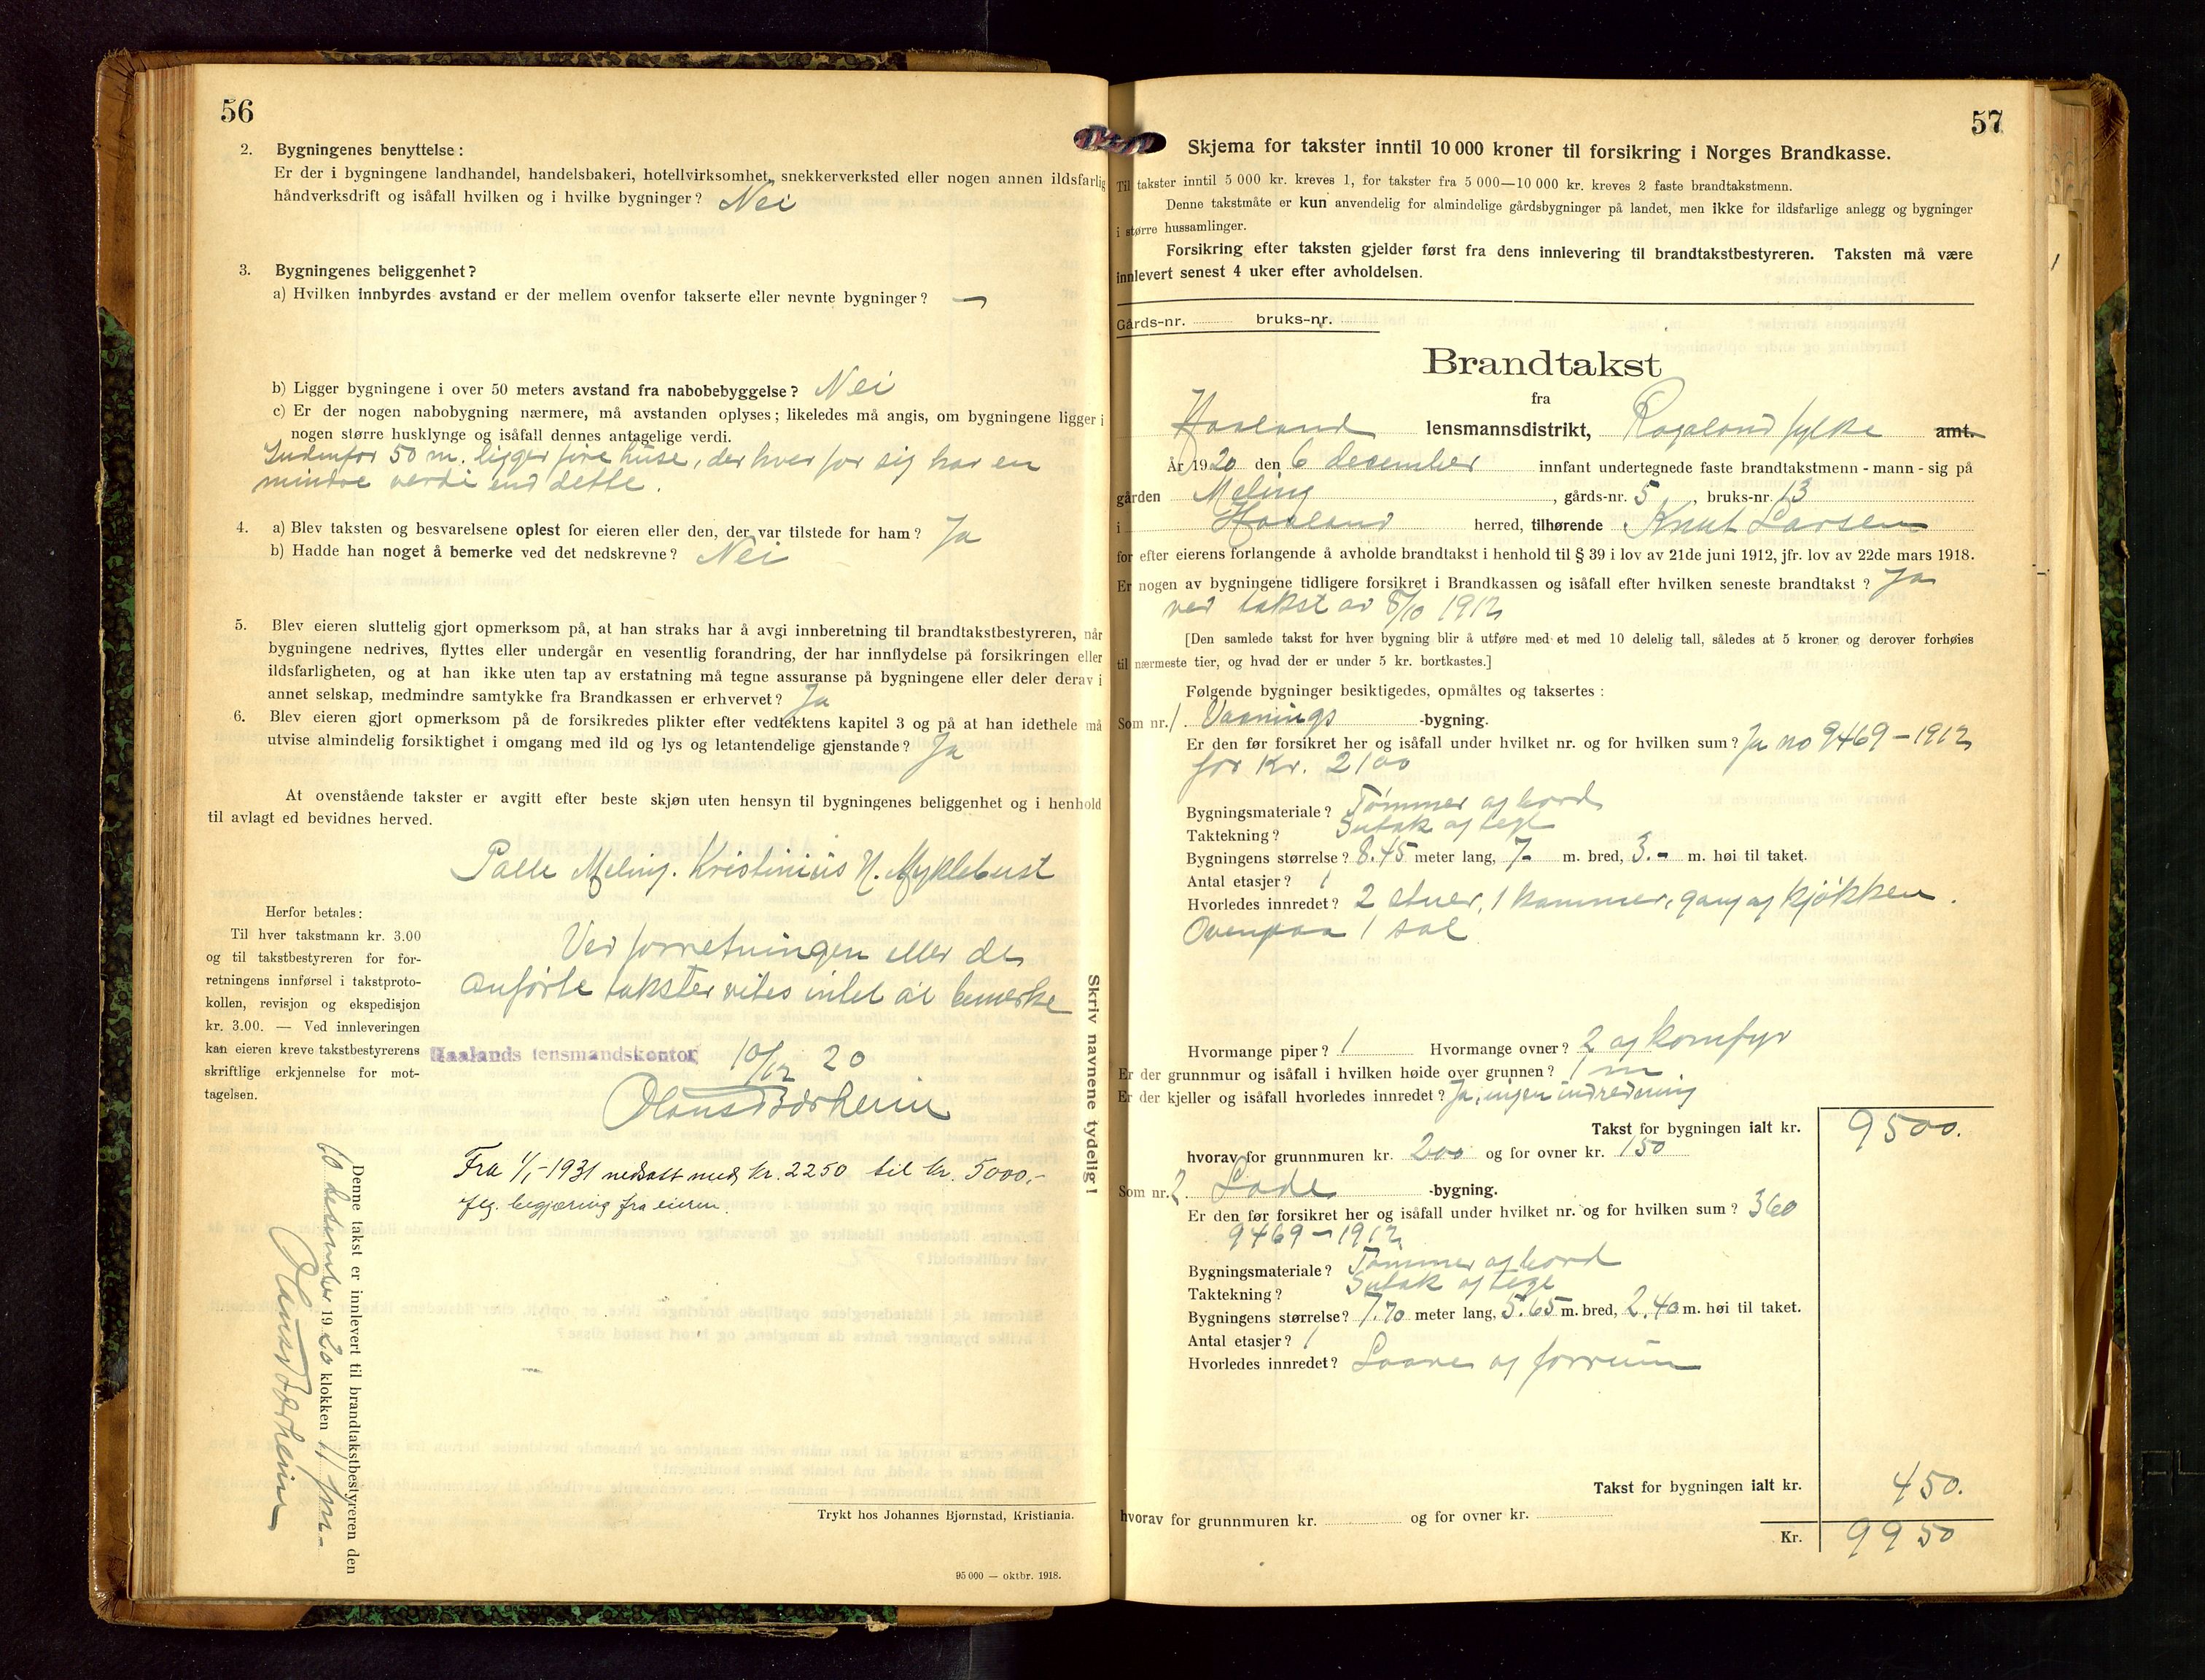 56
2. Bygningenes benyttelse:
Er der i bygningene landhandel, handelsbakeri, hotellvirksomhet, snekkerverksted eller nogen annen ildsfarlig
håndverksdrift og isåfall hvilken og i hvilke bygninger? Nei
3. Bygningenes beliggenhet?
a) Hvilken innbyrdes avstand er der mellem ovenfor takserte eller nevnte bygninger? —
b) Ligger bygningene i over 50 meters avstand fra nabobebyggelse? Nei
c) Er der nogen nabobygning nærmere, må avstanden oplyses; likeledes må angis, om bygningene ligger i
nogen større husklynge og isåfall dennes antagelige verdi.
Indenfor 50 m. ligger fire huse, der hver for sig har en
mindre verdi end dette.
4. a) Blev taksten og besvarelsene oplest for eieren eller den, der var tilstede for ham? Ja
b) Hadde han noget å bemerke ved det nedskrevne? Nei
5. Blev eieren sluttelig gjort opmerksom på, at han straks har å avgi innberetning til brandtakstbestyreren, når
bygningene nedrives, flyttes eller undergår en vesentlig forandring, der har innflydelse på forsikringen eller
ildsfarligheten, og at han ikke uten tap av erstatning må tegne assuranse på bygningene eller deler derav i
annet selskap, medmindre samtykke fra Brandkassen er erhvervet? Ja
6. Blev eieren gjort opmerksom på de forsikredes plikter efter vedtektens kapitel 3 og på at han idethele må
utvise almindelig forsiktighet i omgang med ild og lys og letantendelige gjenstande? Ja
At ovenstående takster er avgitt efter beste skjøn uten hensyn til bygningenes beliggenhet og i henhold
til avlagt ed bevidnes herved.
Palle Meling. Kristinius N. Myklebust
Herfor betales:
Til hver takstmann kr. 3.00
og til takstbestyreren for for-
retningens innførsel i takstproto-
kollen, revisjon og ekspedisjon
kr. 3.00. — Ved innleveringen
kan eieren kreve takstbestyrerens
skriftlige erkjennelse for mot-
tagelsen.
Ved forretningen eller de
anførte takster vites intet at bemerke
Haalands lensmandskontor 10/12 20
Olaus Børheim
Fra 1/1-1931 nedsatt med kr. 2250 til kr. 5000,-
flg. begjæring fra eieren.
Denne takst er innlevert til brandtakstbestyreren den
10 desember 1920 klokken 11 fm.
Olaus Børheim
Skriv navnene tydelig!
Trykt hos Johannes Bjørnstad, Kristiania.
95 000 — oktbr. 1918.
57
Skjema for takster inntil 10 000 kroner til forsikring i Norges Brandkasse.
Til takster inntil 5 000 kr. kreves 1, for takster fra 5 000—10 000 kr. kreves 2 faste brandtakstmenn.
Denne takstmåte er kun anvendelig for almindelige gårdsbygninger på landet, men ikke for ildsfarlige anlegg og bygninger
i større hussamlinger.
Forsikring efter taksten gjelder først fra dens innlevering til brandtakstbestyreren. Taksten må være
innlevert senest 4 uker efter avholdelsen.
Gårds-nr. bruks-nr.
Brandtakst
fra
Haaland lensmannsdistrikt, Rogaland fylke amt.
År 1920 den 6 december innfant undertegnede faste brandtakstmenn - mann - sig på
gården Meling, gårds-nr. 5, bruks-nr. 13
i Haaland herred, tilhørende Knut Larsen
for efter eierens forlangende å avholde brandtakst i henhold til § 39 i lov av 21de juni 1912, jfr. lov av 22de mars 1918.
Er nogen av bygningene tidligere forsikret i Brandkassen og isåfall efter hvilken seneste brandtakst? Ja
ved takst av 8/10 1912
[Den samlede takst for hver bygning blir å utføre med et med 10 delelig tall, således at 5 kroner og derover forhøies
til nærmeste tier, og hvad der er under 5 kr. bortkastes.]
Følgende bygninger besiktigedes, opmåltes og taksertes:
Som nr. 1. Vaanings -bygning.
Er den før forsikret her og isåfall under hvilket nr. og for hvilken sum? Ja no 9469 - 1912
for Kr. 2100
Bygningsmateriale? Tømmer og bord
Taktekning? Sutak og tegl
Bygningens størrelse? 8.45 meter lang, 7- m. bred, 3.- m. høi til taket.
Antal etasjer? 1
Hvorledes innredet? 2 stuer, 1 kammer, gang og kjøkken.
Ovenpaa 1 sal
Hvormange piper? 1 Hvormange ovner? 2 og komfyr
Er der grunnmur og isåfall i hvilken høide over grunnen? 1 m
Er der kjeller og isåfall hvorledes innredet? Ja, ingen indredning
Takst for bygningen ialt kr. 9500.
hvorav for grunnmuren kr. 200 og for ovner kr. 150
Som nr. 2. Lade -bygning.
Er den før forsikret her og isåfall under hvilket nr. og for hvilken sum? 360
9469 - 1912
Bygningsmateriale? Tømmer og bord
Taktekning? Sutak og tegl
Bygningens størrelse? 7.70 meter lang, 5.65 m. bred, 2.40 m. høi til taket.
Antal etasjer? 1
Hvorledes innredet? Laave og forrum
Takst for bygningen ialt kr. 450.
hvorav for grunnmuren kr. og for ovner kr.
Kr. 9950